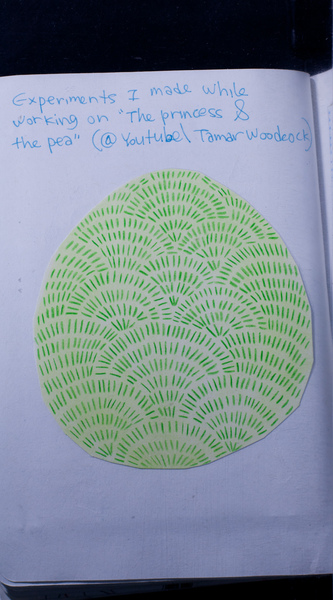 Experiments I made while
working on "The princess &
the pea" (@ Youtube| Tamar Woodcock)